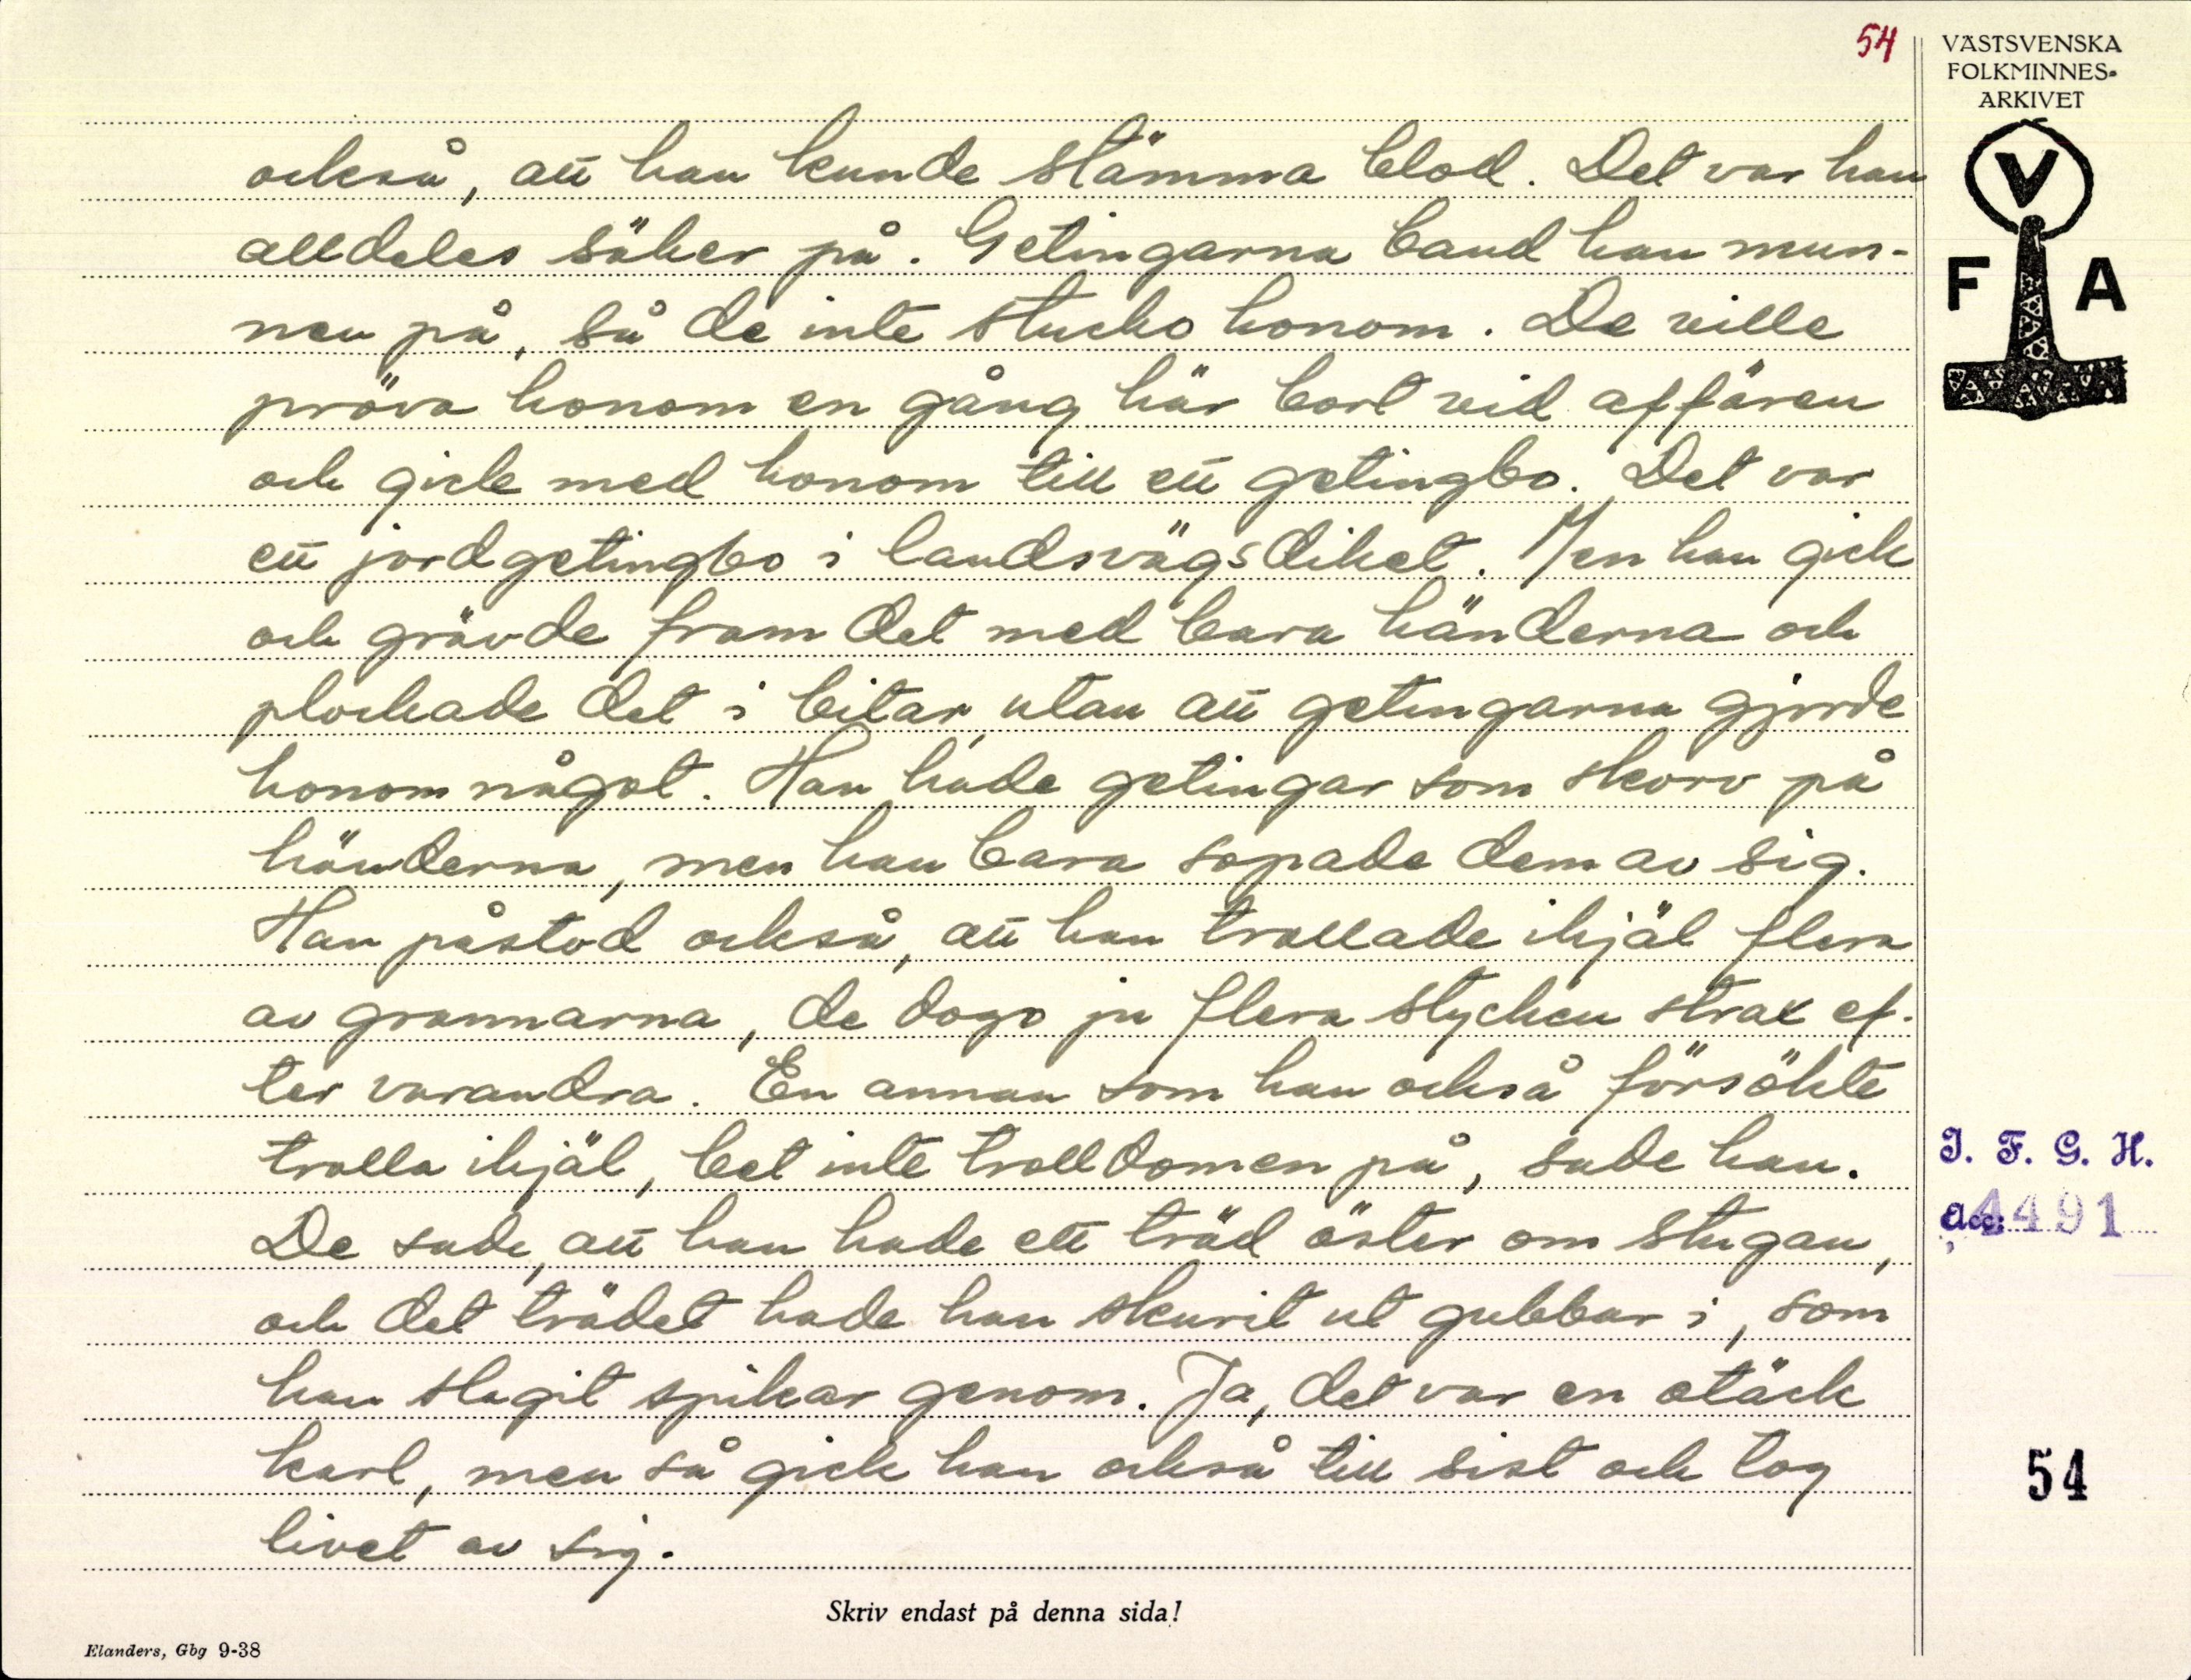 54
VÄSTSVENSKA
FOLKMINNES-
ARKIVET
V
F A
också, att han kunde stämma blod. Det var han
alldeles säker på. Getingarna band han mun-
nen på, så de inte stucko honom. De ville
pröva honom en gång här bort vid affären
och gick med honom till ett getingbo. Det var
ett jordgetingbo i landsvägsdiket. Men han gick
och grävde fram det med bara händerna och
plockade det i bitar, utan att getingarna gjorde
honom något. Han hade getingar som skorv på
händerna, men han bara sopade dem av sig.
Han påstod också, att han trollade ihjäl flera
av grannarna, de dogo ju flera stycken strax ef-
ter varandra. En annan som han också försökte
trolla ihjäl, bet inte trolldomen på, sade han.
De sade, att han hade ett träd öster om stugan,
och det trädet hade han skurit ut gubbar i, som
han slagit spikar genom. Ja, det var en otäck
karl, men så gick han också till sist och tog
livet av sig.
I. F. G. H.
Acc: 4491
54
Skriv endast på denna sida!
Elanders, Gbg 9-38